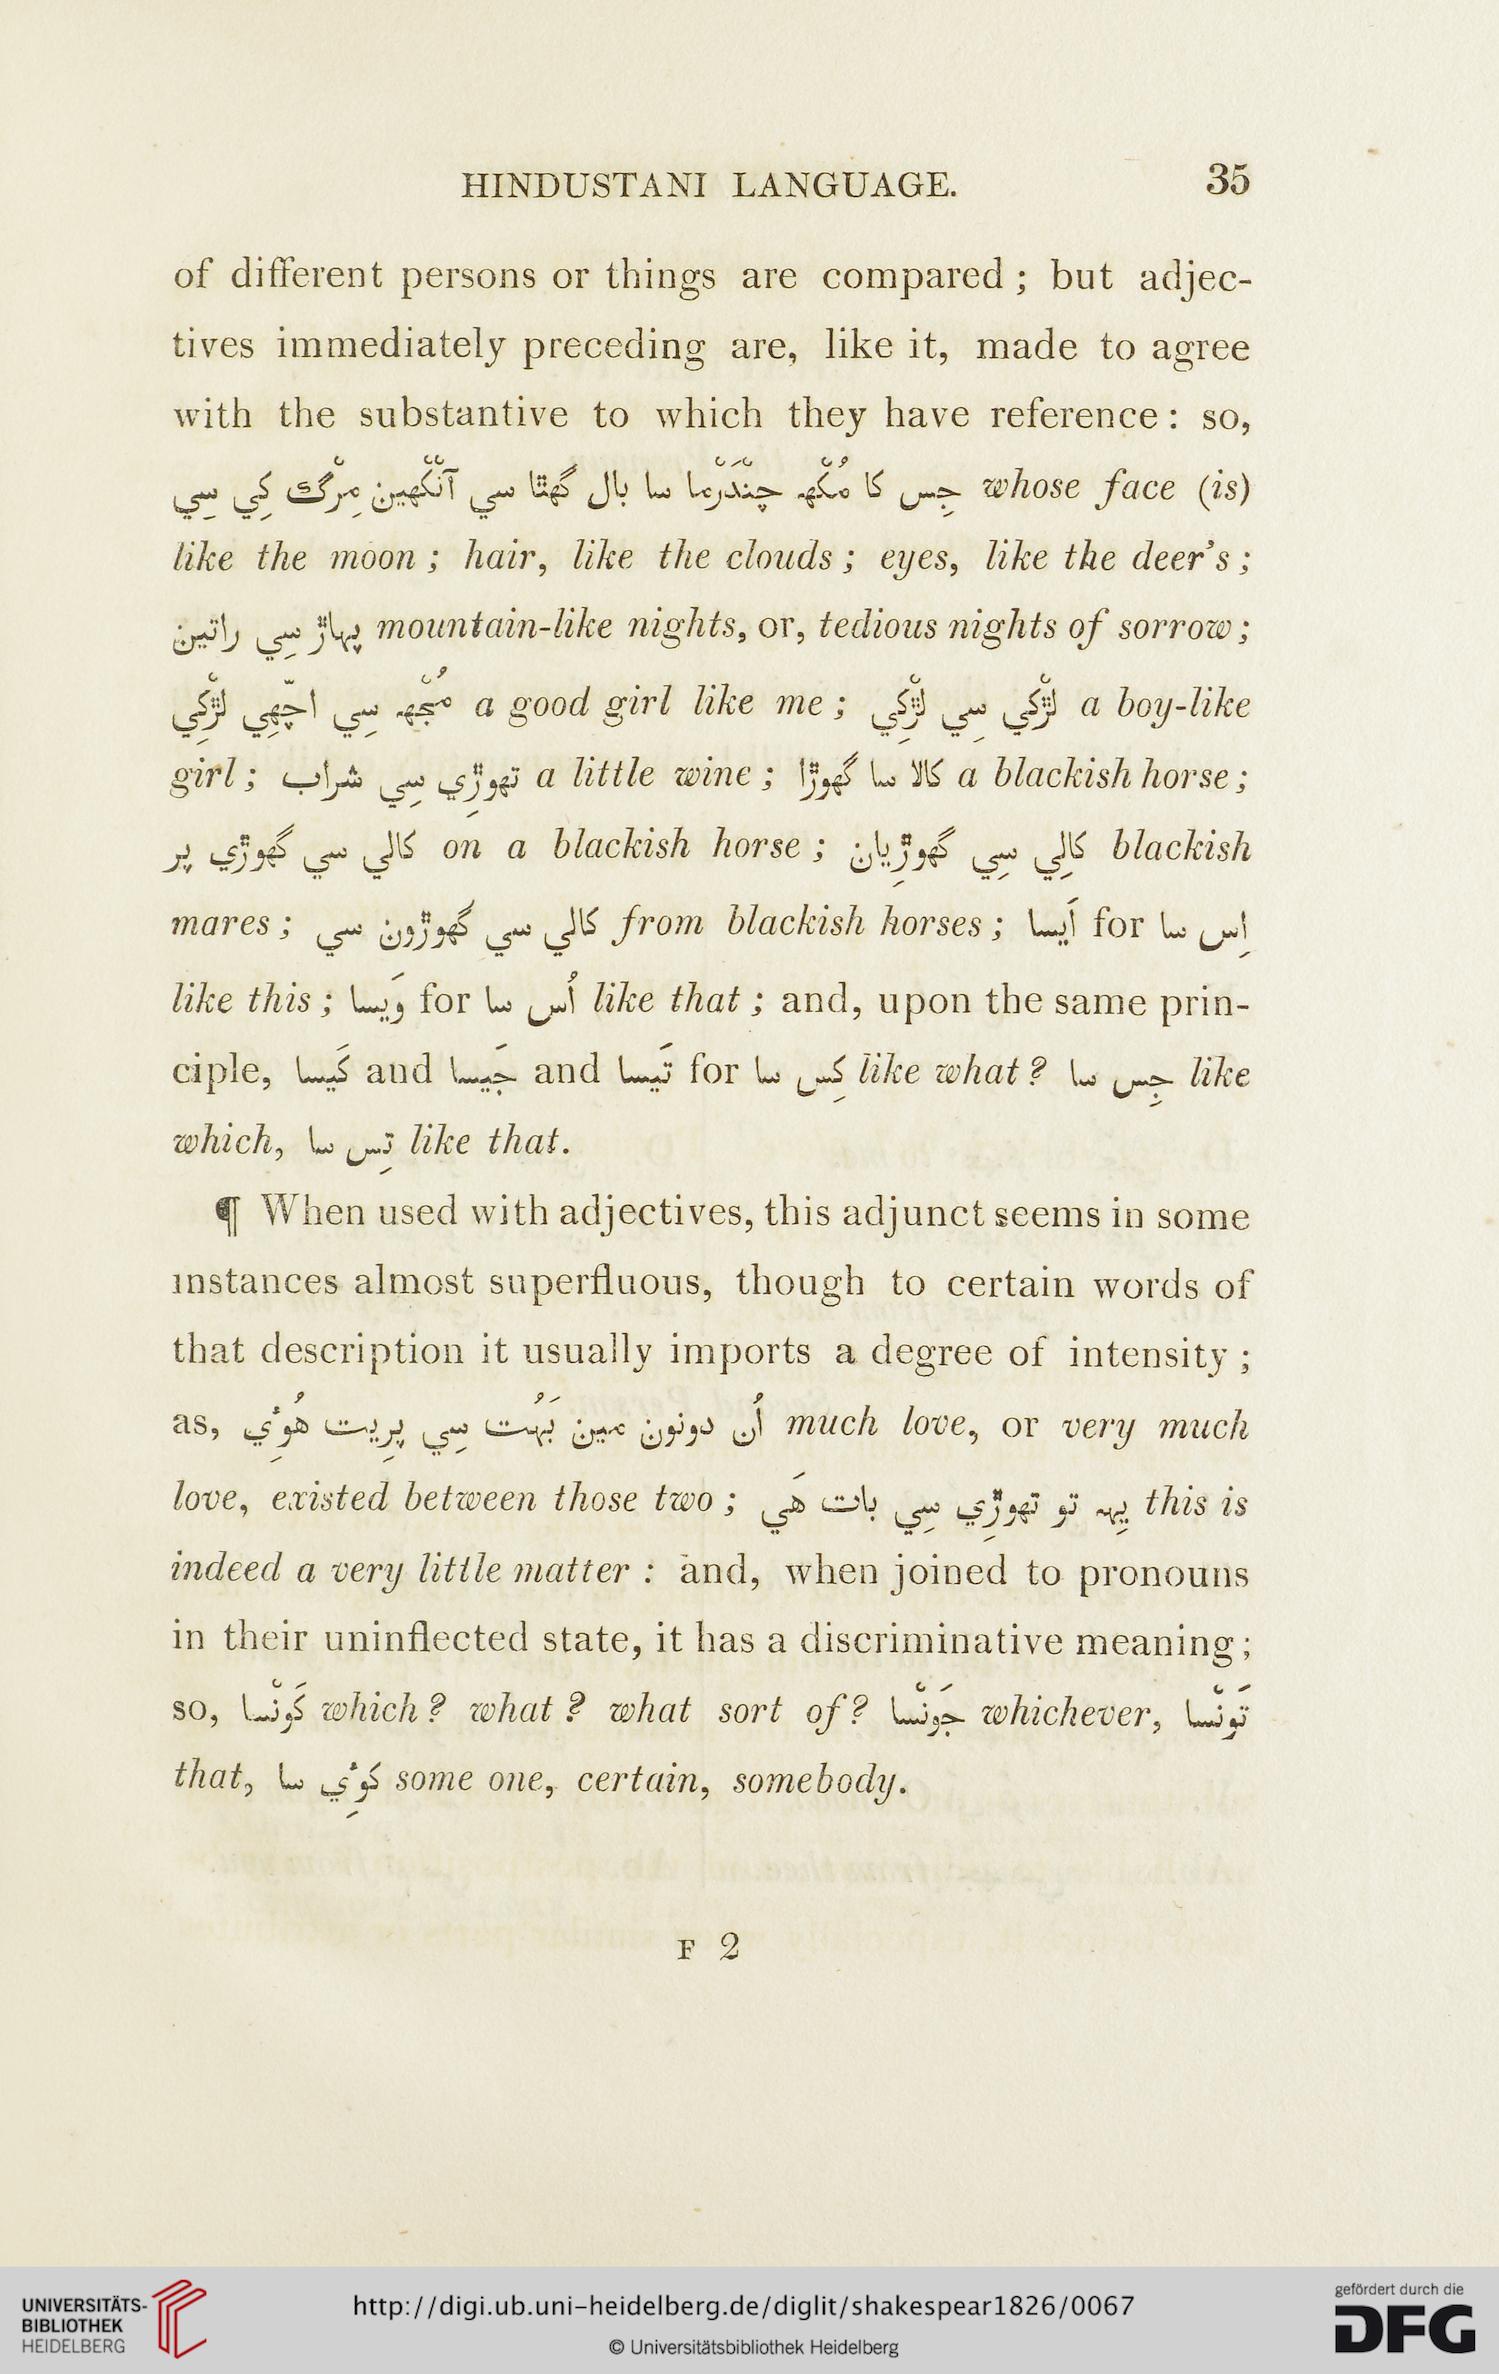 HINDUSTANI LANGUAGE. 35
of different persons or things are compared ; but adjec-
tives immediately preceding are, like it, made to agree
with the substantive to which they have reference : so,
جِس کا مُکْھہ چنْدَرْما سا بال گھٿا سي آنْکْھین مِرْگ کِي سِي whose face (is)
like the moon ; hair, like the clouds ; eyes, like the deer's ;
پہاڙ سِي راتین mountain-like nights, or, tedious nights of sorrow ;
مُجْھہ سِي اچّھِي لڙْکِي a good girl like me ; لڙْکي سِي لڙْکِي a boy-like
girl ; تھوڙِي سِي شراب a little wine ; کالا سا گھوڙا a blackish horse ;
کالي سي گھوڙي پر on a blackish horse ; کالِي سِي گھوڙِیان blackish
mares ; کالي سي گھوڙون سي from blackish horses ; اَیسا for اِس سا
like this ; وَیسا for اُس سا like that ; and, upon the same prin-
ciple, کَیسا and جَیسا and تَیسا for کِس سا like what ? جِس سا like
which, تِس سا like that.
¶ When used with adjectives, this adjunct seems in some
instances almost superfluous, though to certain words of
that description it usually imports a degree of intensity ;
as, اُن دونون مین بَہُت سِي پرِیت هُوئِي much love, or very much
love, existed between those two ; یِہہ تو تھوڙِي سِي بات هَي this is
indeed a very little matter : and, when joined to pronouns
in their uninflected state, it has a discriminative meaning ;
so, کَونْسا which ? what ? what sort of ? جَونْسا whichever, تَونْسا
that, کوئِي سا some one, certain, somebody.
F 2
UNIVERSITÄTS-
BIBLIOTHEK
HEIDELBERG
http://digi.ub.uni-heidelberg.de/diglit/shakespear1826/0067
© Universitätsbibliothek Heidelberg
gefördert durch die
DFG